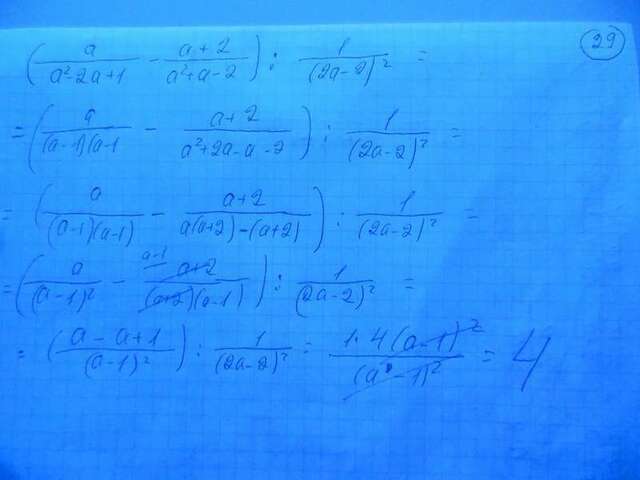 29
(a/(a²-2a+1) - (a+2)/(a²+a-2)) : 1/(2a-2)² =
= (a/((a-1)(a-1) - (a+2)/(a²+2a-a-2)) : 1/(2a-2)² =
= (a/((a-1)(a-1)) - (a+2)/(a(a+2)-(a+2))) : 1/(2a-2)² =
= (a/(a-1)² - a-1 (a+2)/((a+2)(a-1))) : 1/(2a-2)² =
= ((a-a+1)/(a-1)²) : 1/(2a-2)² = 1·4(a-1)²/(a-1)² = 4